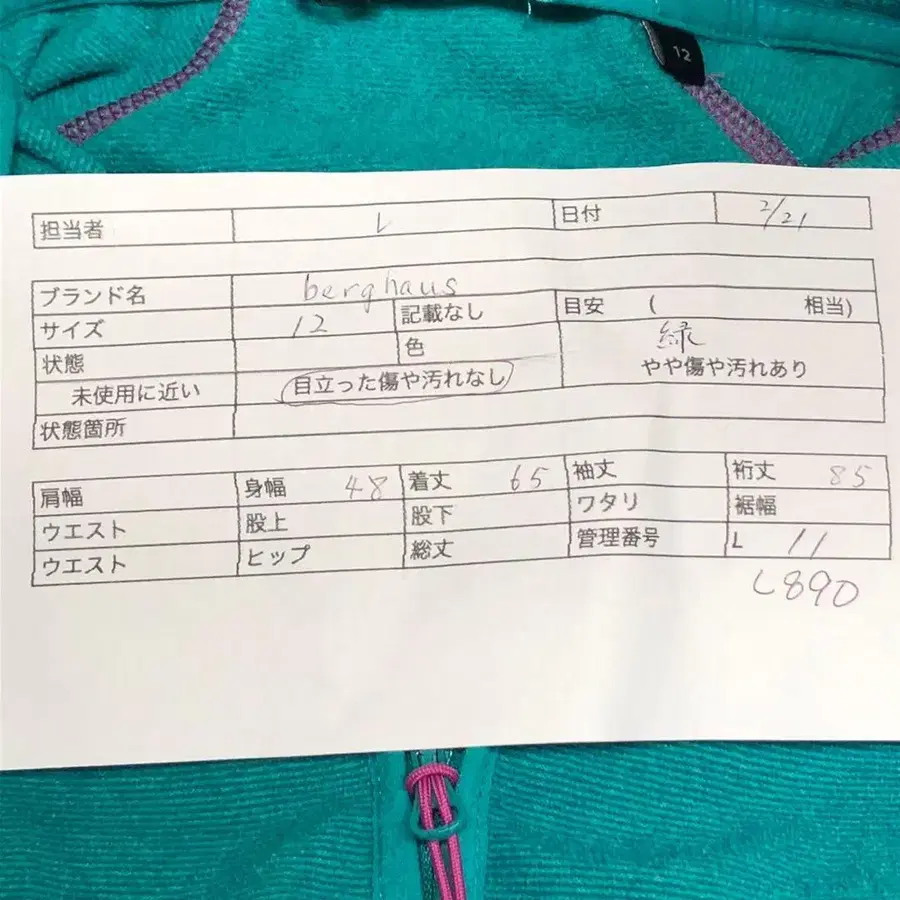 12
担当者 L 日付 2/21
ブランド名 berghaus
サイズ 12 記載なし 目安 ( 相当)
状態 色 緑
未使用に近い 目立った傷や汚れなし やや傷や汚れあり
状態箇所
肩幅 身幅 48 着丈 65 袖丈 裄丈 85
ウエスト 股上 股下 ワタリ 裾幅
ウエスト ヒップ 総丈 管理番号 L 11
L890